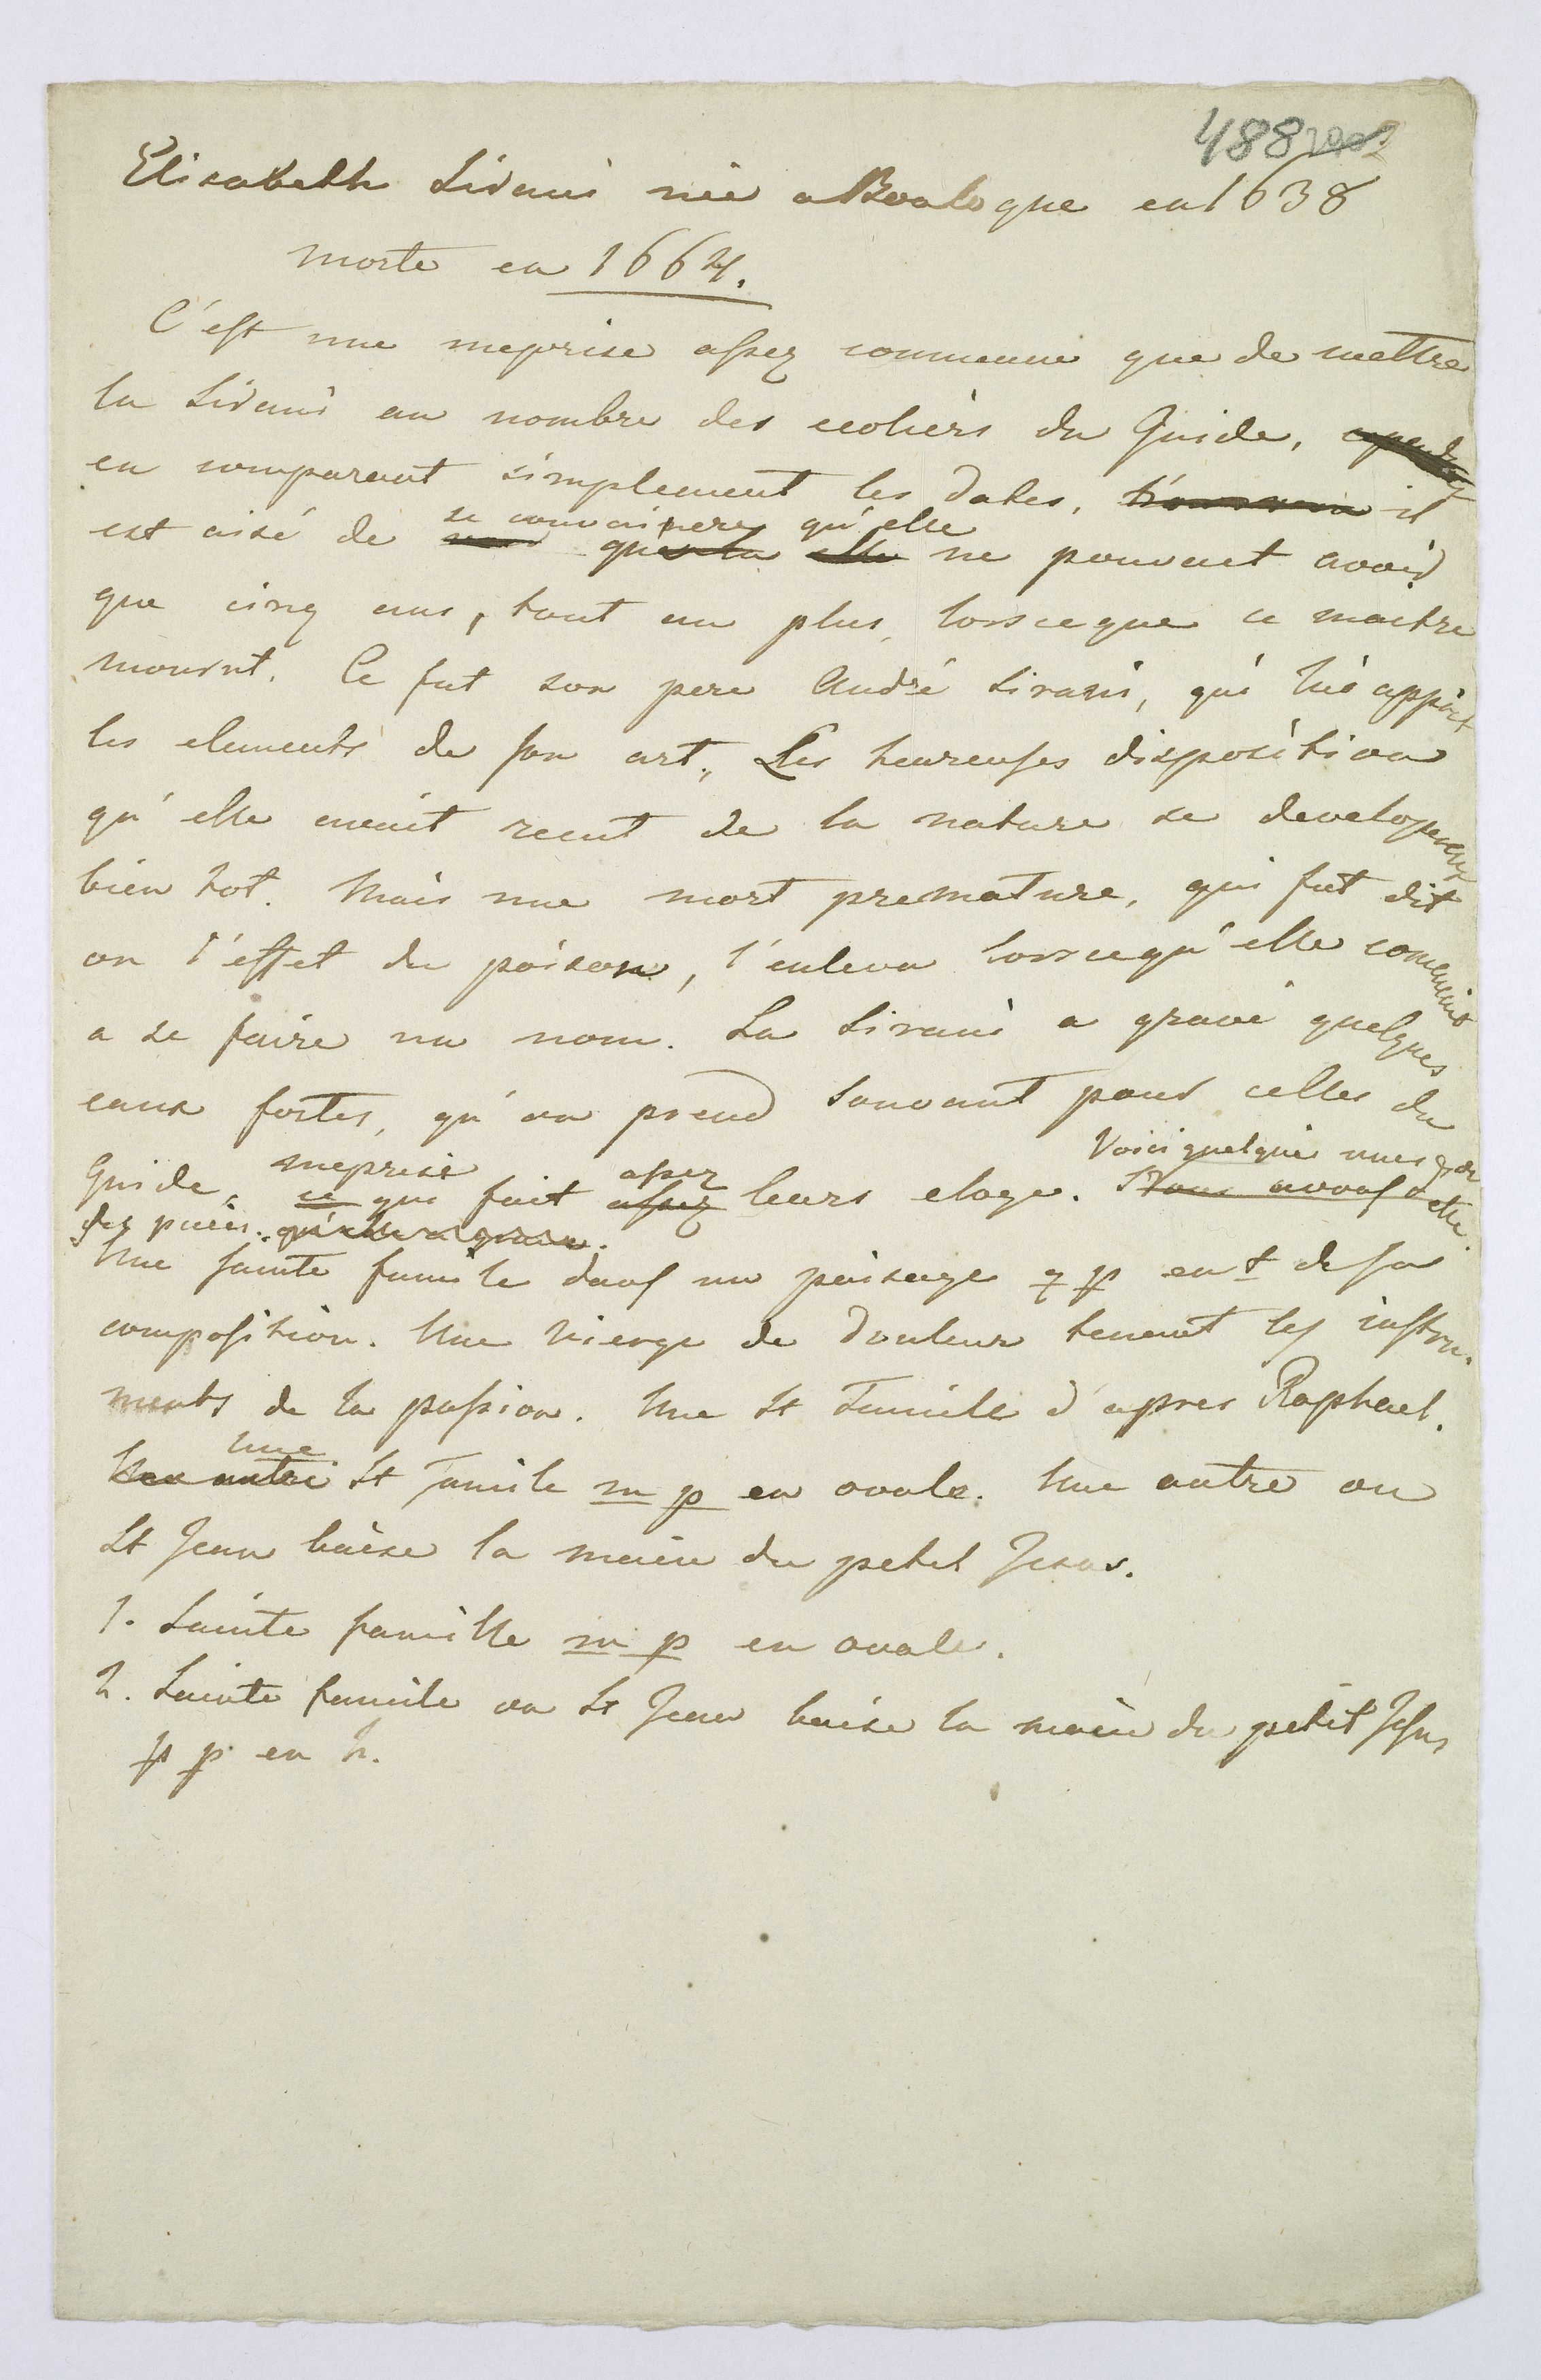 488
Elisabeth Sirani née a Boulogne en 1638
morte en 1664.
C'est une meprise assez commune que de mettre
la Sirani au nombre des ecoliers du Guide,
en comparant simplement les dates, il
est aisé de se convaincre qu'elle ne pouvait avoir
que cinq ans, tout au plus, lorsceque ce maitre
mourut. Ce fut son pere André Sirani, qui lui apprit
les elements de son art. Les heureuses disposition
qu'elle avait recut de la nature se developerent
bien tot. Mais une mort premature, qui fut dit
on l'effet du poison, l'enleva lorscequ'elle comencoit
a se faire un nom. La Sirani a gravé quelques
eaux fortes, qu'on prend souvant pour celles du
Voici quelque unes de
Guide, meprise qui fait assez leurs eloge. Nous avons d'elle
des pieces. qu'elle a gravée.
Une sainte famile dans un paisage q p en t de sa
composition. Une vierge de douleur tenant les instru-
ments de la passion. Une St Famile d'apres Raphael.
Une autre Une St Famile m p en ovale. Une autre ou
St Jean baise la main du petit Jesus.
1. Sainte famille m p en ovale.
2. Sainte famile ou St Jean baise la main du petit Jesus
p p en h.